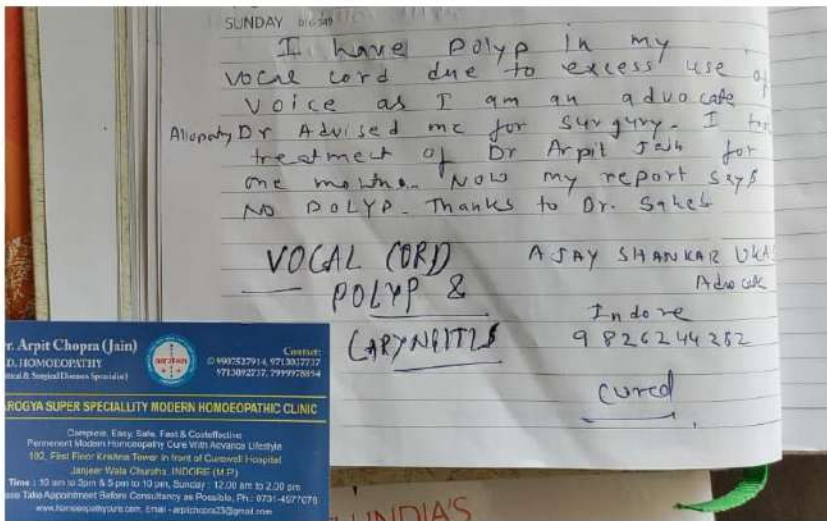 SUNDAY
I have polyp in my
vocal cord due to excess use of
voice as I am an advocate
Allopathy Dr Advised me for surgury. I
treatment of Dr Arpit Jain for
one months. Now my report says
NO POLYP. Thanks to Dr. Saheb
VOCAL CORD
POLYP &
LARYNGITIS
AJAY SHANKAR
Advocate
Indore
9826244282
cured
r. Arpit Chopra (Jain)
D. HOMOEOPATHY
ical & Surgical Diseases Specialist)
Contact:
9907527914, 9713037737
9713092737, 7999978894
AROGYA SUPER SPECIALLITY MODERN HOMOEOPATHIC CLINIC
Complete, Easy, Safe, Fast & Costeffective
Permenent Modern Homoeopathy Cure With Advance Lifestyle
102, First Floor Krishna Tower in front of Curewell Hospital
Janjeer Wala Churaha, INDORE (M.P.)
Time : 10 am to 5pm & 5 pm to 10 pm, Sunday : 12.00 am to 2.00 pm
ase Take Appointment Before Consultancy as Possible, Ph.: 0731-4977076
www.homoeopathycure.com, Email - arpitchopra23@gmail.com
INDIA'S